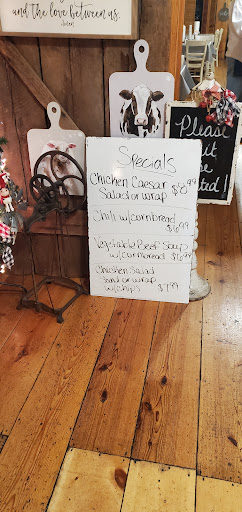 and the love between us.
Please
it
be
ted!
Specials
Chicken Caesar $8.99
Salad or wrap
Chili w/cornbread
$6.99
Vegetable Beef Soup
w/cornbread $6.99
Chicken Salad
Salad or wrap
w/chips $7.99